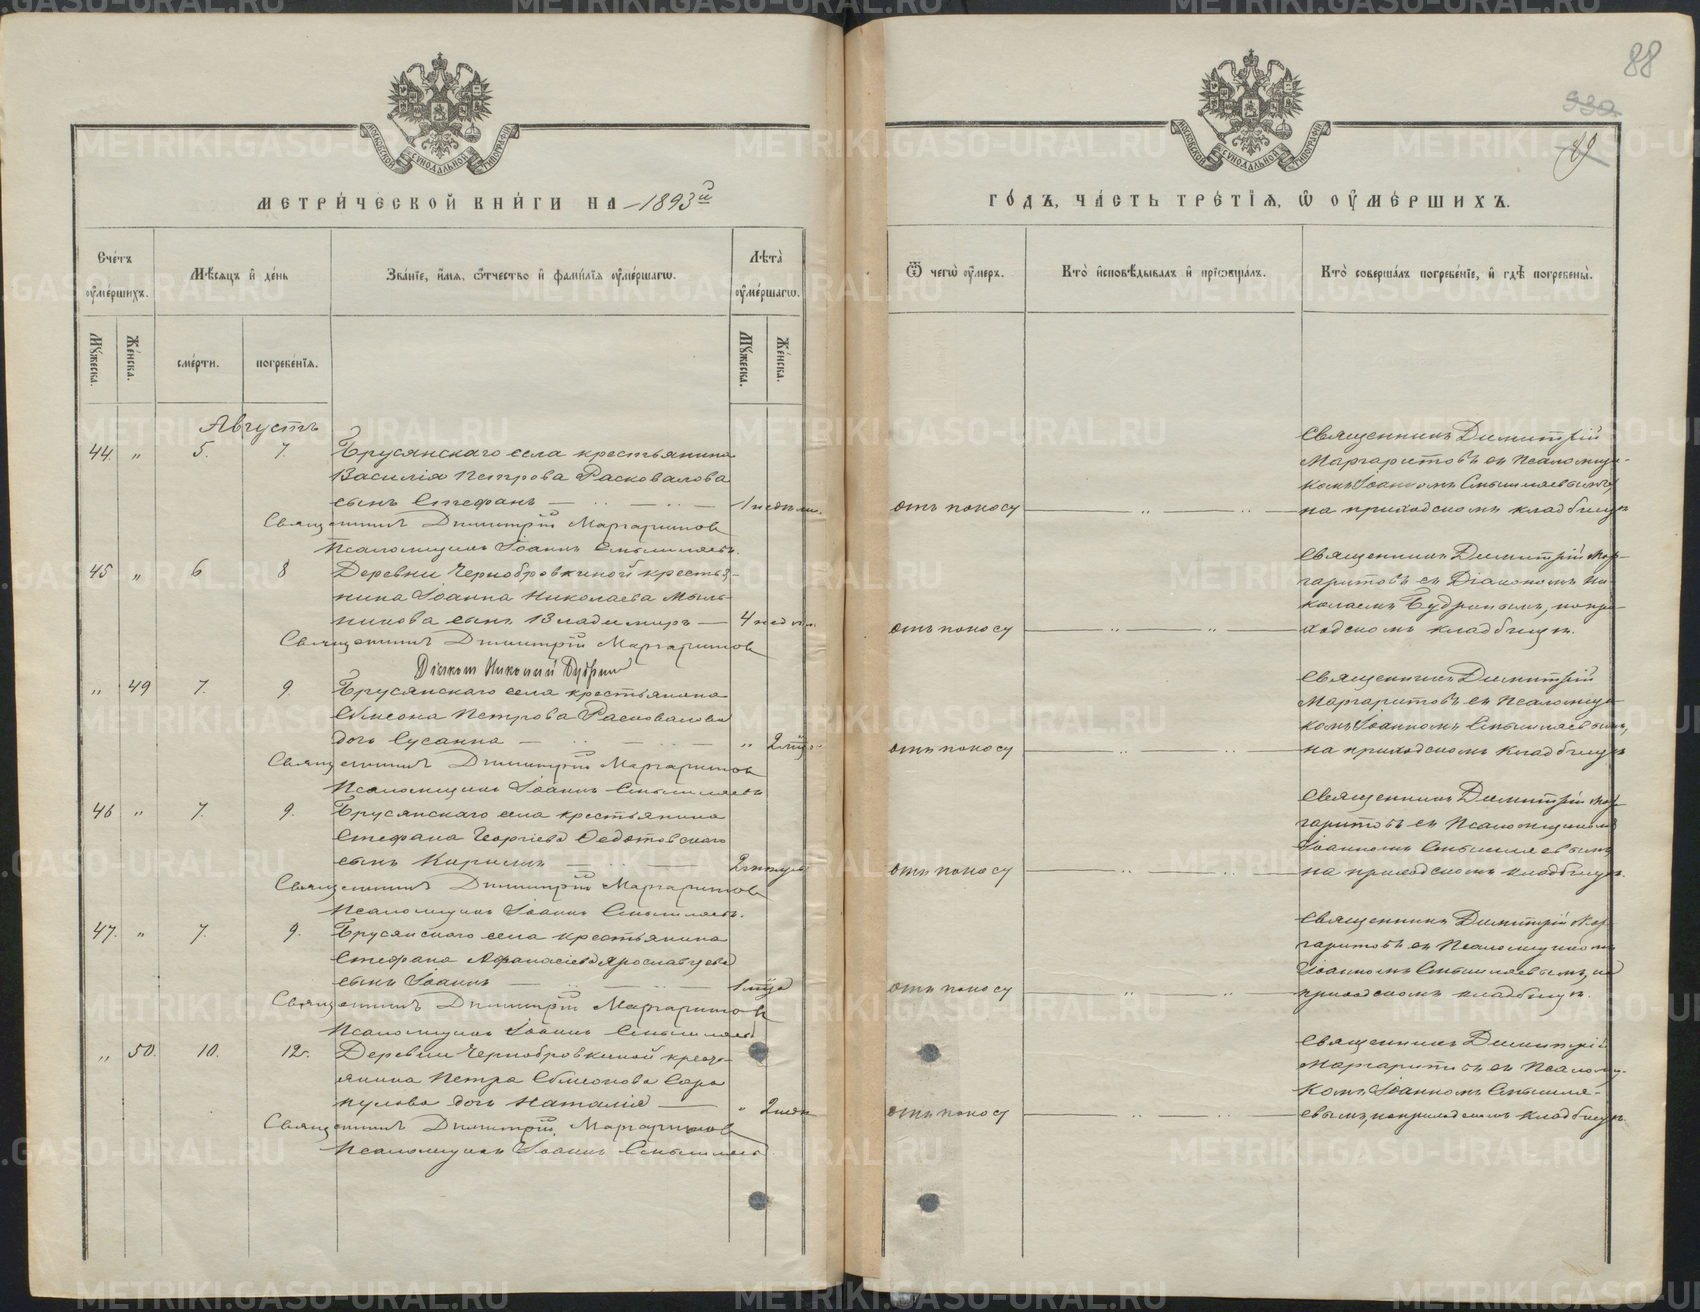 88
89
МЕТРИ́ЧЕСКОЙ КНИ́ГИ НА 1893й
ГО́ДЪ, ЧА́СТЬ ТРЕ́ТІѦ, Ѽ ОУМЕ́РШИХЪ.
Сче́тъ оумершихъ.
Мѣ́сѧцъ и де́нь
Зва́ніе, и́мѧ, ѻ҆́тчество и фами́лїѧ оуме́ршагѡ.
Лѣта̀ оуме́ршагѡ.
Ѿ чегѡ̀ оу́меръ.
Кто̀ и҆сповѣ́дывалъ и҆ прїѡбща́лъ.
Кто̀ соверша́лъ погребе́нїе, и҆ гдѣ̀ погребены̀.
Мꙋ́жеска.
Же́нска.
сме́рти.
погребе́нїѧ.
Мꙋ́жеска.
Же́нска.
Августъ
44. „ 5. 7. Брусянскаго села крестьянина
Василія Петрова Расковалова
сынъ Стефанъ — 1 недѣли.
Священникъ Димитрій Маргаритовъ
Псаломщикъ Іоаннъ Смышляевъ.
отъ поносу
Священникъ Димитрій
Маргаритовъ съ Псаломщи-
комъ Іоанномъ Смышляевымъ,
на приходскомъ кладбищѣ
45 „ 6 8 Деревни Чернобровкиной крестья-
нина Іоанна Николаева Мыль-
никова сынъ Владимиръ — 4 недѣли.
Священникъ Димитрій Маргаритовъ
Діаконъ Николай Будринъ
отъ поносу
Священникъ Димитрій Мар-
гаритовъ съ Діакономъ Ни-
колаемъ Будринымъ, на при-
ходскомъ кладбищѣ.
„ 49 7. 9. Брусянскаго села крестьянина
Сѵмеона Петрова Расковалова
дочь Сусанна — „ 2 мѣс.
Священникъ Димитрій Маргаритовъ
Псаломщикъ Іоаннъ Смышляевъ
отъ поносу
Священникъ Димитрій
Маргаритовъ съ Псаломщи-
комъ Іоанномъ Смышляевымъ,
на приходскомъ кладбищѣ
46 „ 7. 9. Брусянскаго села крестьянина
Стефана Георгіева Федотовскаго
сынъ Кириллъ —
Священникъ Димитрій Маргаритовъ
Псаломщикъ Іоаннъ Смышляевъ.
отъ поносу
Священникъ Димитрій Мар-
гаритовъ съ Псаломщикомъ
Іоанномъ Смышляевымъ
на приходскомъ кладбищѣ.
47. „ 7. 9. Брусянскаго села крестьянина
Стефана Афанасіева Ярославцева
сынъ Іоаннъ — 1 года
Священникъ Димитрій Маргаритовъ
Псаломщикъ Іоаннъ Смышляевъ
отъ поносу
Священникъ Димитрій Мар-
гаритовъ съ Псаломщикомъ
Іоанномъ Смышляевымъ, на
приходскомъ кладбищѣ.
„ 50. 10. 12. Деревни Чернобровкиной кресть-
янина Петра Сѵмеонова Сара
пулова дочь Наталія — „ 2 нед.
Священникъ Димитрій Маргаритовъ
Псаломщикъ Іоаннъ Смышляевъ
отъ поносу
Священникъ Димитрій
Маргаритовъ съ Псаломщи-
комъ Іоанномъ Смышля-
евымъ, на приходскомъ кладбищѣ.
METRIKI.GASO-URAL.RU